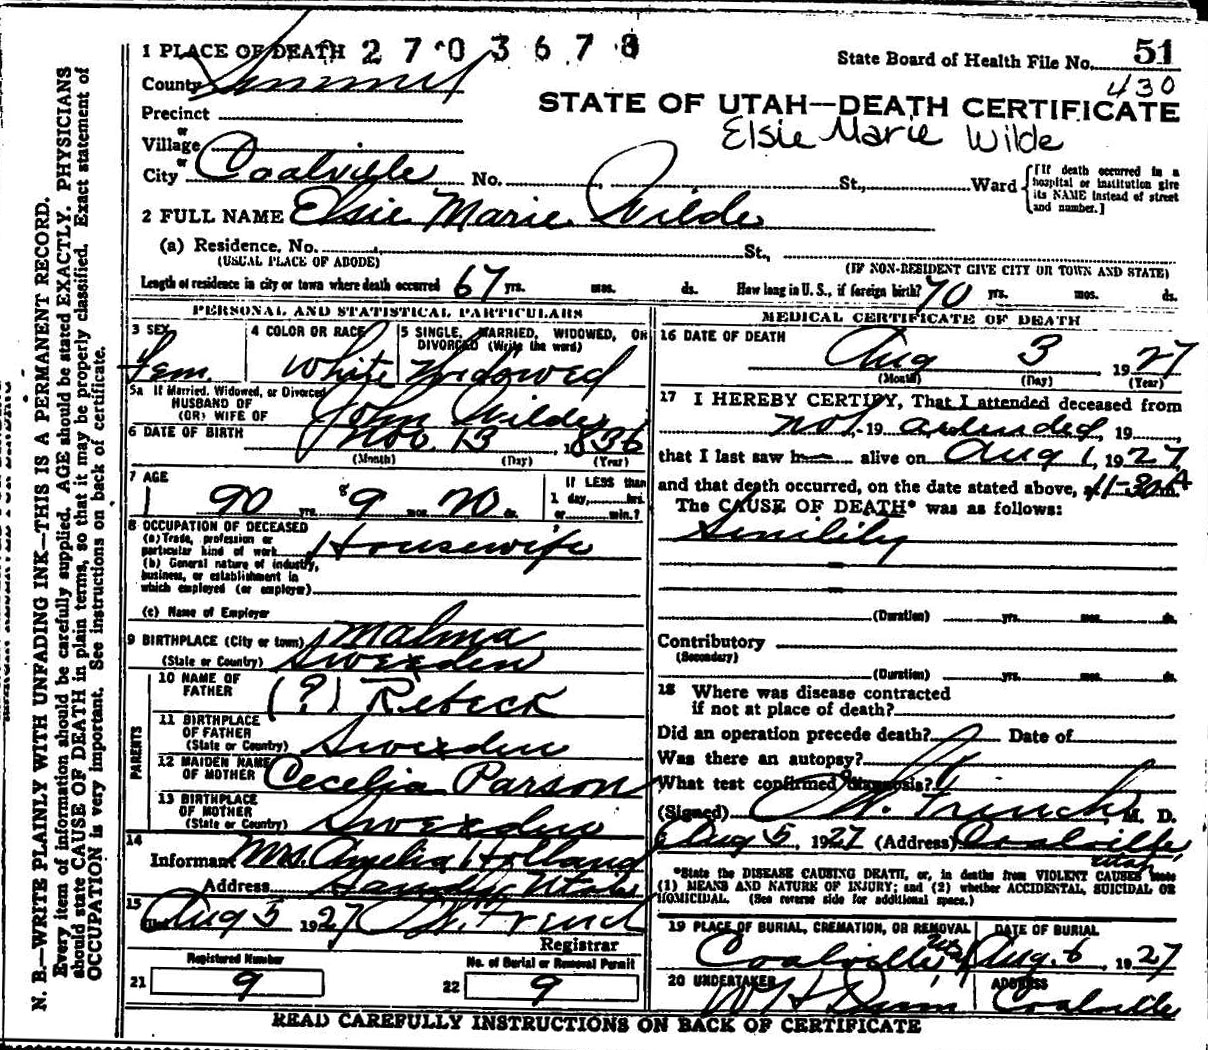 1 PLACE OF DEATH 2703678
State Board of Health File No. 51
County Summit
430
STATE OF UTAH—DEATH CERTIFICATE
Precinct
Elsie Marie Wilde
or
Village
or
City Coalville No. St., Ward
[If death occurred in a hospital or institution give its NAME instead of street and number.]
2 FULL NAME Elsie Marie Wilde
(a) Residence, No. St.,
(USUAL PLACE OF ABODE) (IF NON-RESIDENT GIVE CITY OR TOWN AND STATE)
Length of residence in city or town where death occurred 67 yrs. mos. ds. How long in U. S., if foreign birth? 70 yrs. mos. ds.
PERSONAL AND STATISTICAL PARTICULARS
3 SEX
Fem.
4 COLOR OR RACE
White
5 SINGLE, MARRIED, WIDOWED, OR DIVORCED (Write the word)
Widowed
5a If Married, Widowed, or Divorced
HUSBAND OF
(OR) WIFE OF John Wilde
6 DATE OF BIRTH Nov. 13, 1836
(Month) (Day) (Year)
7 AGE
90 yrs. 8 9 mos. 20 ds.
If LESS than
1 day, hrs.
or min.?
8 OCCUPATION OF DECEASED
(a) Trade, profession or
particular kind of work Housewife
(b) General nature of industry,
business, or establishment in
which employed (or employer)
(c) Name of Employer
9 BIRTHPLACE (City or town) Malma
(State or Country) Sweden
PARENTS
10 NAME OF
FATHER (?) Rebeck
11 BIRTHPLACE
OF FATHER
(State or Country) Sweden
12 MAIDEN NAME
OF MOTHER Cecelia Parson
13 BIRTHPLACE
OF MOTHER
(State or Country) Sweden
14
Informant Mrs. Amelia Holland
Address Sandy Utah
15
Aug 5 1927 French
Registrar
Registered Number
21 9
No. of Burial or Removal Permit
22 9
MEDICAL CERTIFICATE OF DEATH
16 DATE OF DEATH
Aug 3 1927
(Month) (Day) (Year)
17 I HEREBY CERTIFY, That I attended deceased from
not, 19 attended, 19
that I last saw h alive on Aug 1, 1927
and that death occurred, on the date stated above, 11-30 A
The CAUSE OF DEATH* was as follows:
Senility
(Duration) yrs. mos. ds.
Contributory
(Secondary)
(Duration) yrs. mos. ds.
18 Where was disease contracted
if not at place of death?
Did an operation precede death? Date of
Was there an autopsy?
What test confirmed diagnosis?
(Signed) W. French, M. D.
Aug 5, 1927 (Address) Coalville,
Utah
*State the DISEASE CAUSING DEATH, or, in deaths from VIOLENT CAUSES state
(1) MEANS AND NATURE OF INJURY; and (2) whether ACCIDENTAL, SUICIDAL OR
HOMICIDAL. (See reverse side for additional space.)
19 PLACE OF BURIAL, CREMATION, OR REMOVAL
Coalville, Utah
DATE OF BURIAL
Aug. 6, 1927
20 UNDERTAKER
W H Dunn
ADDRESS
Coalville
READ CAREFULLY INSTRUCTIONS ON BACK OF CERTIFICATE
N. B.—WRITE PLAINLY WITH UNFADING INK—THIS IS A PERMANENT RECORD.
Every item of information should be carefully supplied. AGE should be stated EXACTLY. PHYSICIANS
should state CAUSE OF DEATH in plain terms, so that it may be properly classified. Exact statement of
OCCUPATION is very important. See instructions on back of certificate.